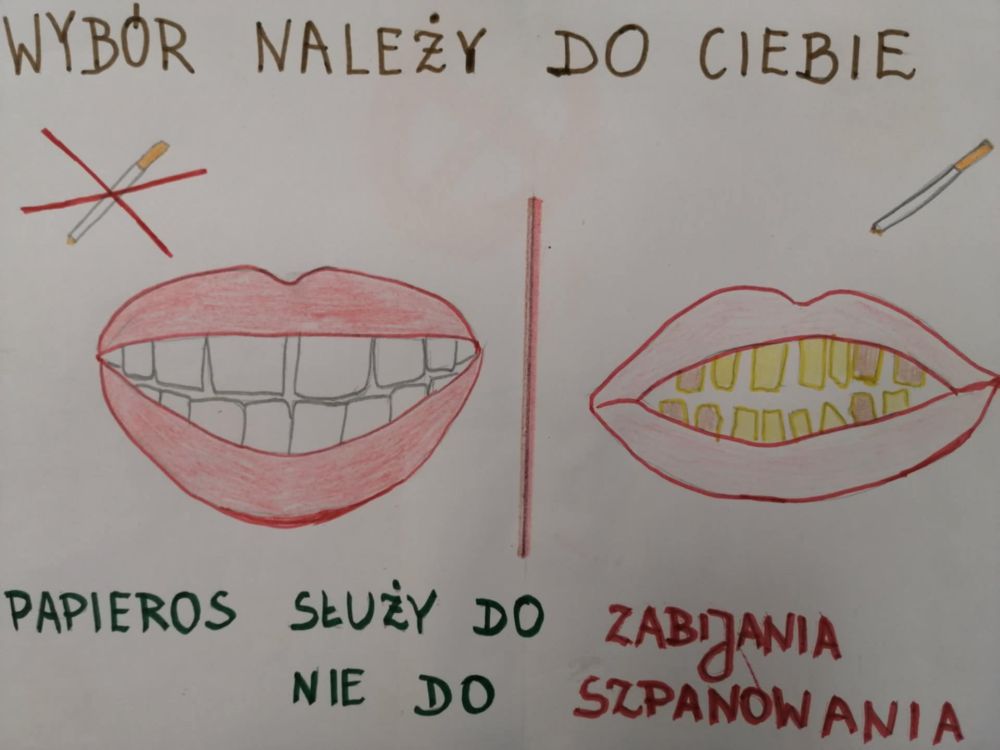 WYBÓR NALEŻY DO CIEBIE
PAPIEROS SŁUŻY DO ZABIJANIA
NIE DO SZPANOWANIA